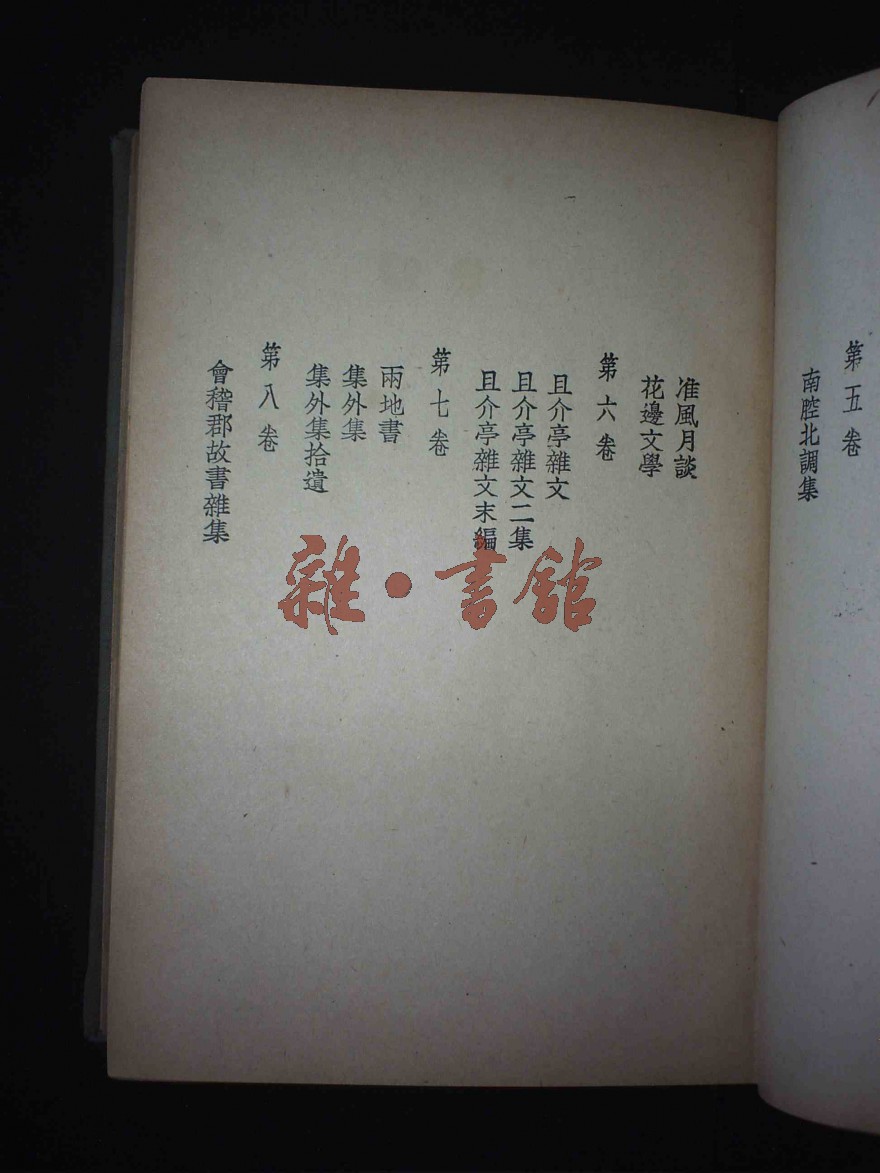 第五卷
南腔北調集
准風月談
花邊文學
第六卷
且介亭雜文
且介亭雜文二集
且介亭雜文末編
第七卷
兩地書
集外集
集外集拾遺
第八卷
會稽郡故書雜集
雜·書館